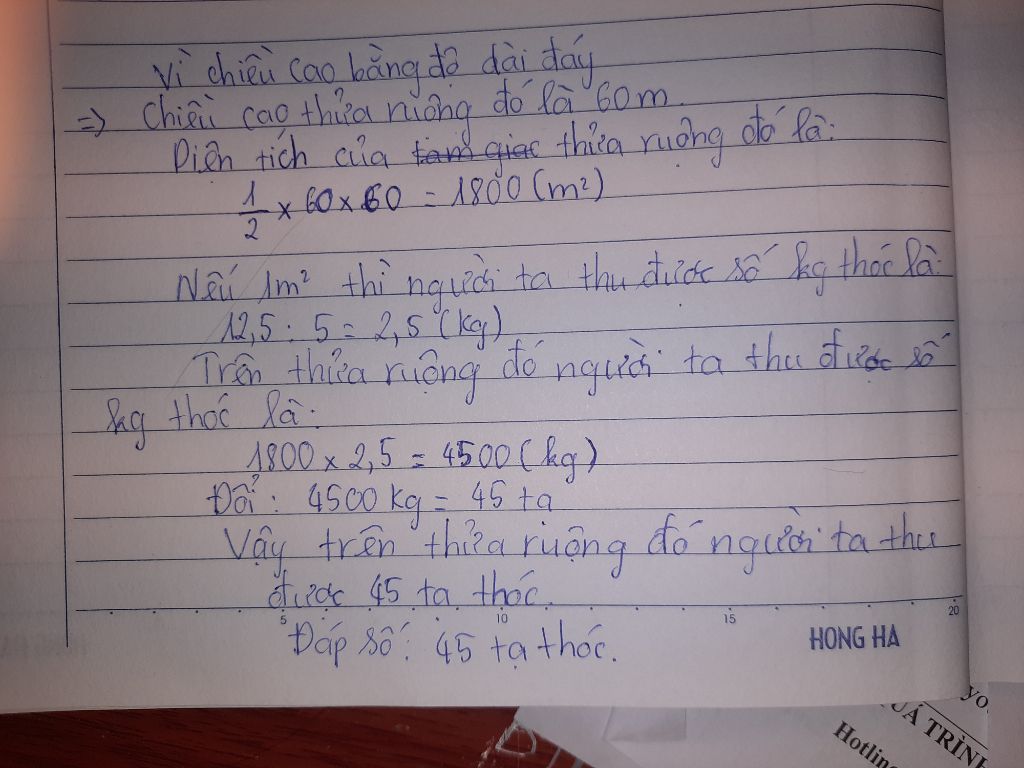 Vì chiều cao bằng độ dài đáy
=> Chiều cao thửa ruộng đó là 60m.
Diện tích của tam giác thửa ruộng đó là:
1/2 × 60 × 60 = 1800 (m²)
Nếu 1m² thì người ta thu được số kg thóc là:
12,5 : 5 = 2,5 (kg)
Trên thửa ruộng đó người ta thu được số
kg thóc là:
1800 × 2,5 = 4500 (kg)
Đổi: 4500 kg = 45 tạ
Vậy trên thửa ruộng đó người ta thu
được 45 tạ thóc.
5 10 15 20
Đáp số: 45 tạ thóc.
HONG HA
yo
UÁ TRÌNH
Hotline